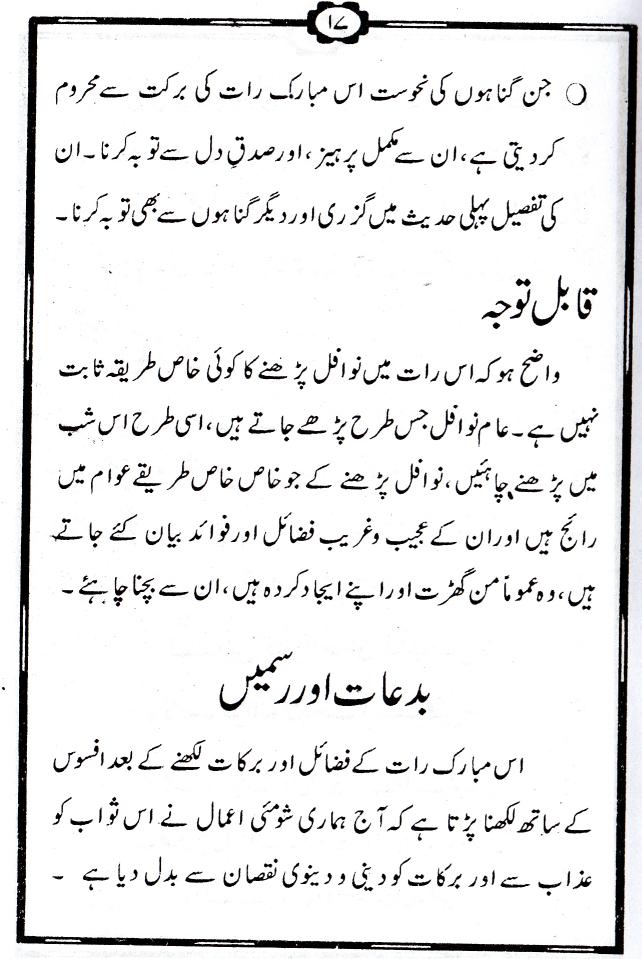 ۱۷
○ جن گناہوں کی نحوست اس مبارک رات کی برکت سے محروم
کر دیتی ہے، ان سے مکمل پرہیز، اور صدقِ دل سے توبہ کرنا۔ ان
کی تفصیل پہلی حدیث میں گزری اور دیگر گناہوں سے بھی توبہ کرنا۔
قابل توجہ
واضح ہو کہ اس رات میں نوافل پڑھنے کا کوئی خاص طریقہ ثابت
نہیں ہے۔ عام نوافل جس طرح پڑھے جاتے ہیں، اسی طرح اس شب
میں پڑھنے چاہئیں، نوافل پڑھنے کے جو خاص خاص طریقے عوام میں
رائج ہیں اور ان کے عجیب و غریب فضائل اور فوائد بیان کئے جاتے
ہیں، وہ عموماً من گھڑت اور اپنے ایجاد کردہ ہیں، ان سے بچنا چاہئے۔
بدعات اور رسمیں
اس مبارک رات کے فضائل اور برکات لکھنے کے بعد افسوس
کے ساتھ لکھنا پڑتا ہے کہ آج ہماری شومئی اعمال نے اس ثواب کو
عذاب سے اور برکات کو دینی و دینوی نقصان سے بدل دیا ہے ۔